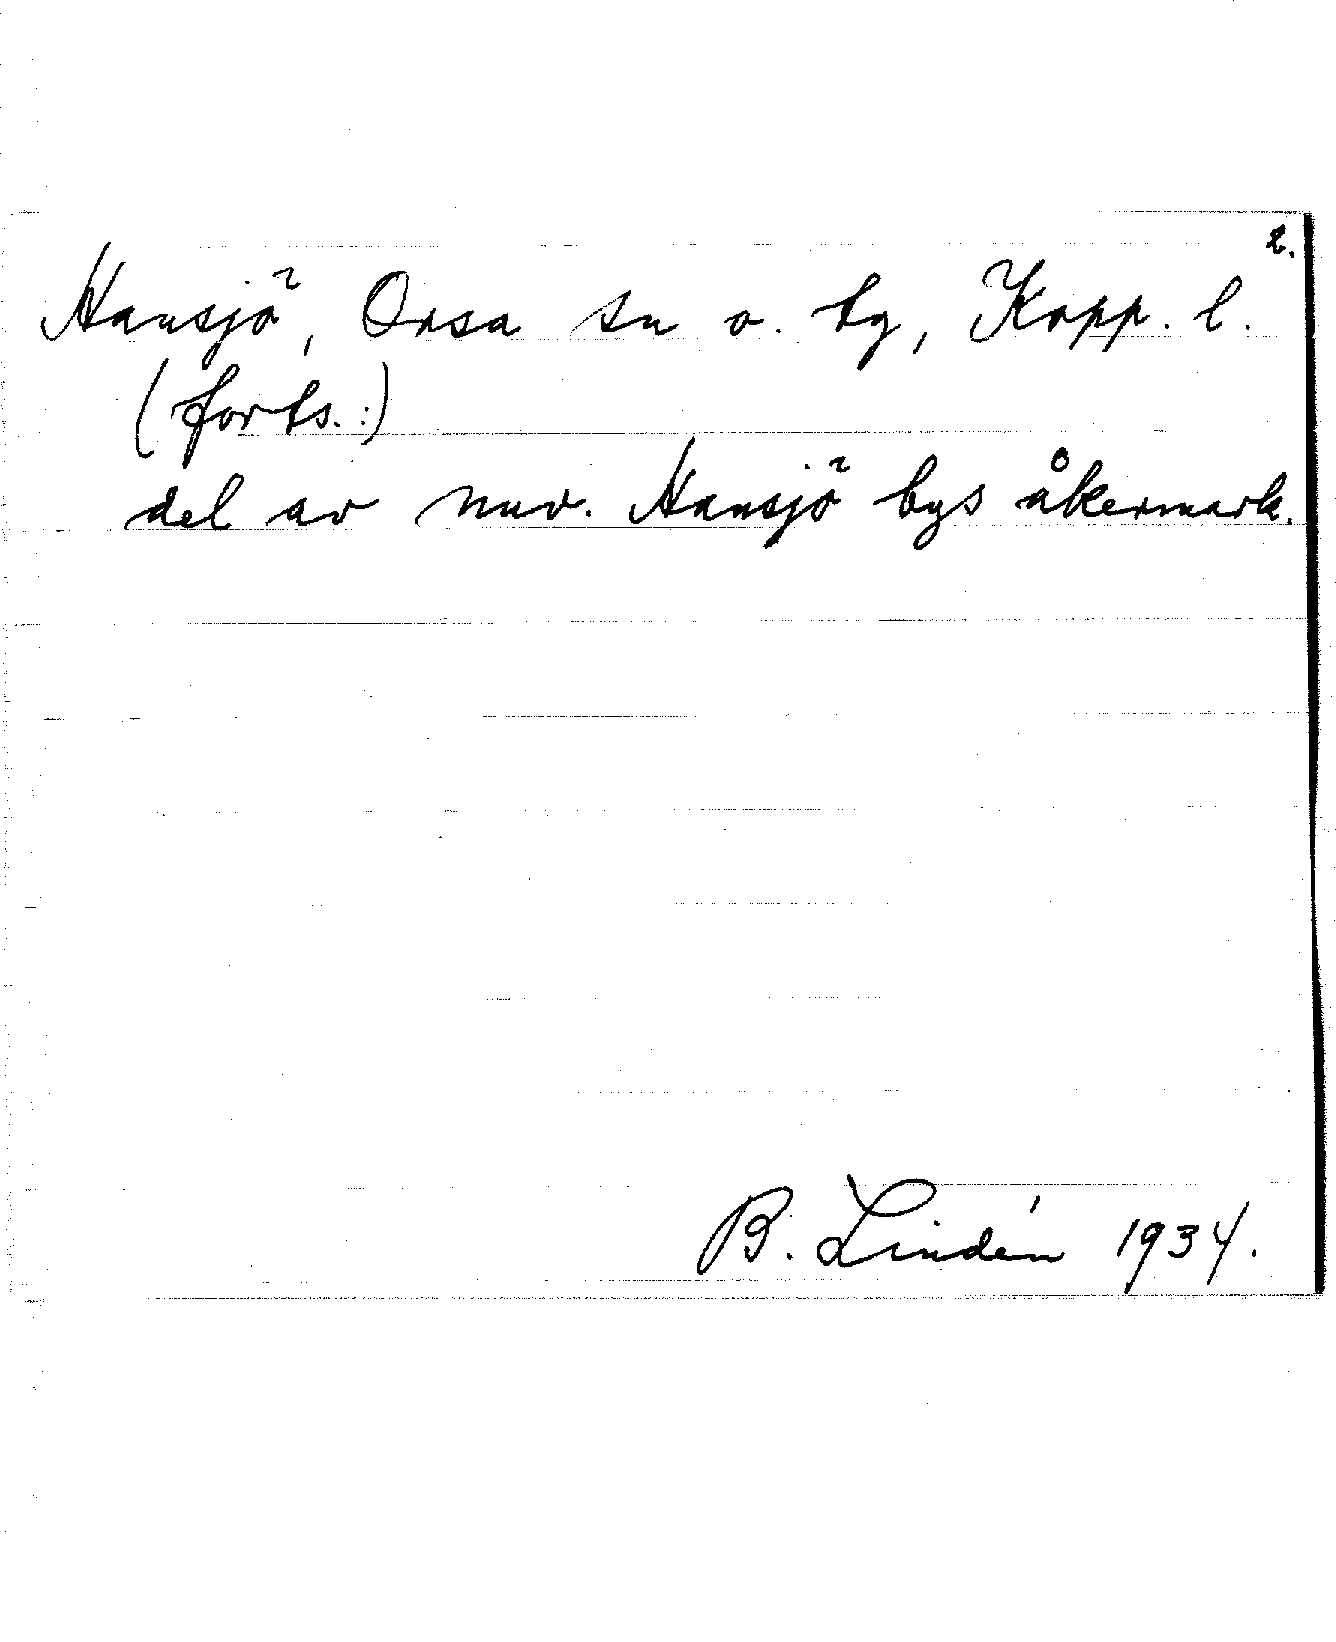 2.
Hansjö, Orsa sn o. by, Kopp. l.
(forts.:)
del av nuv. Hansjö bys åkermark.
B. Lindén 1934.